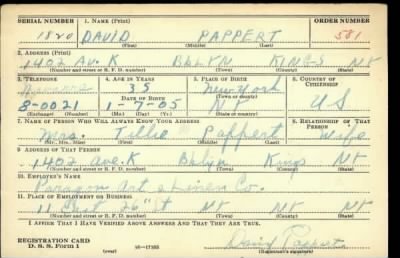 SERIAL NUMBER 1. NAME (Print) ORDER NUMBER
1820 DAVID PAPPERT 581
(First) (Middle) (Last)
2. ADDRESS (Print)
1402 AV. K BKLYN KINGS NY
(Number and street or R. F. D. number) (Town) (County) (State)
3. TELEPHONE 4. AGE IN YEARS 5. PLACE OF BIRTH 6. COUNTRY OF CITIZENSHIP
35 New York
8-0021 DATE OF BIRTH (Town or county) US
1-7-05 NY
(Exchange) (Number) (Mo.) (Day) (Yr.) (State or country)
7. NAME OF PERSON WHO WILL ALWAYS KNOW YOUR ADDRESS 8. RELATIONSHIP OF THAT PERSON
Mrs. Tillie Pappert Wife
(Mr., Mrs., Miss) (First) (Middle) (Last)
9. ADDRESS OF THAT PERSON
1402 Ave. K Bklyn Kings NY
(Number and street or R. F. D. number) (Town) (County) (State)
10. EMPLOYER'S NAME
Paragon Art & Linen Co.
11. PLACE OF EMPLOYMENT OR BUSINESS
11 East 26" St NY NY NY
(Number and street or R. F. D. number) (Town) (County) (State)
I AFFIRM THAT I HAVE VERIFIED ABOVE ANSWERS AND THAT THEY ARE TRUE.
REGISTRATION CARD
D. S. S. Form 1 (over) 16-17105 David Pappert
(Registrant's signature)